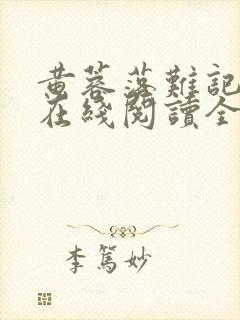 黄蓉落難記
在綫閱讀全
李篤妙